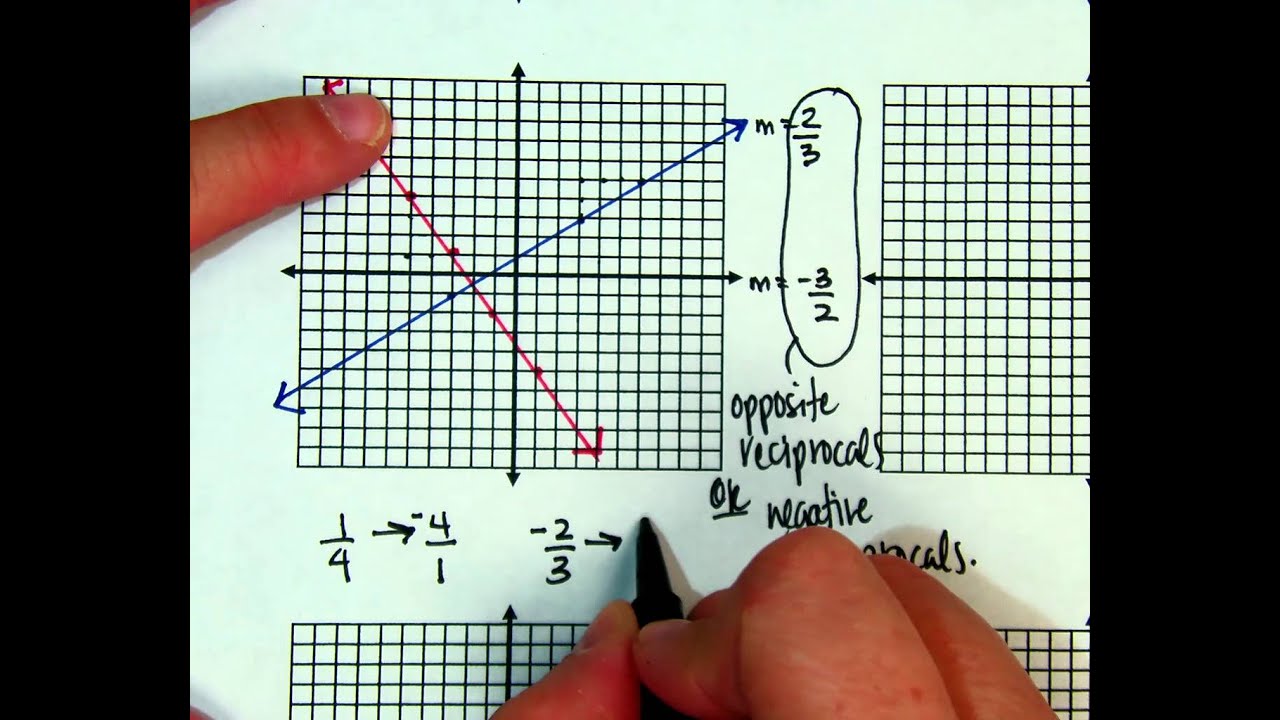 m = 2/3
m = -3/2
opposite
reciprocals
OR
negative
1/4 → -4/1
-2/3 →